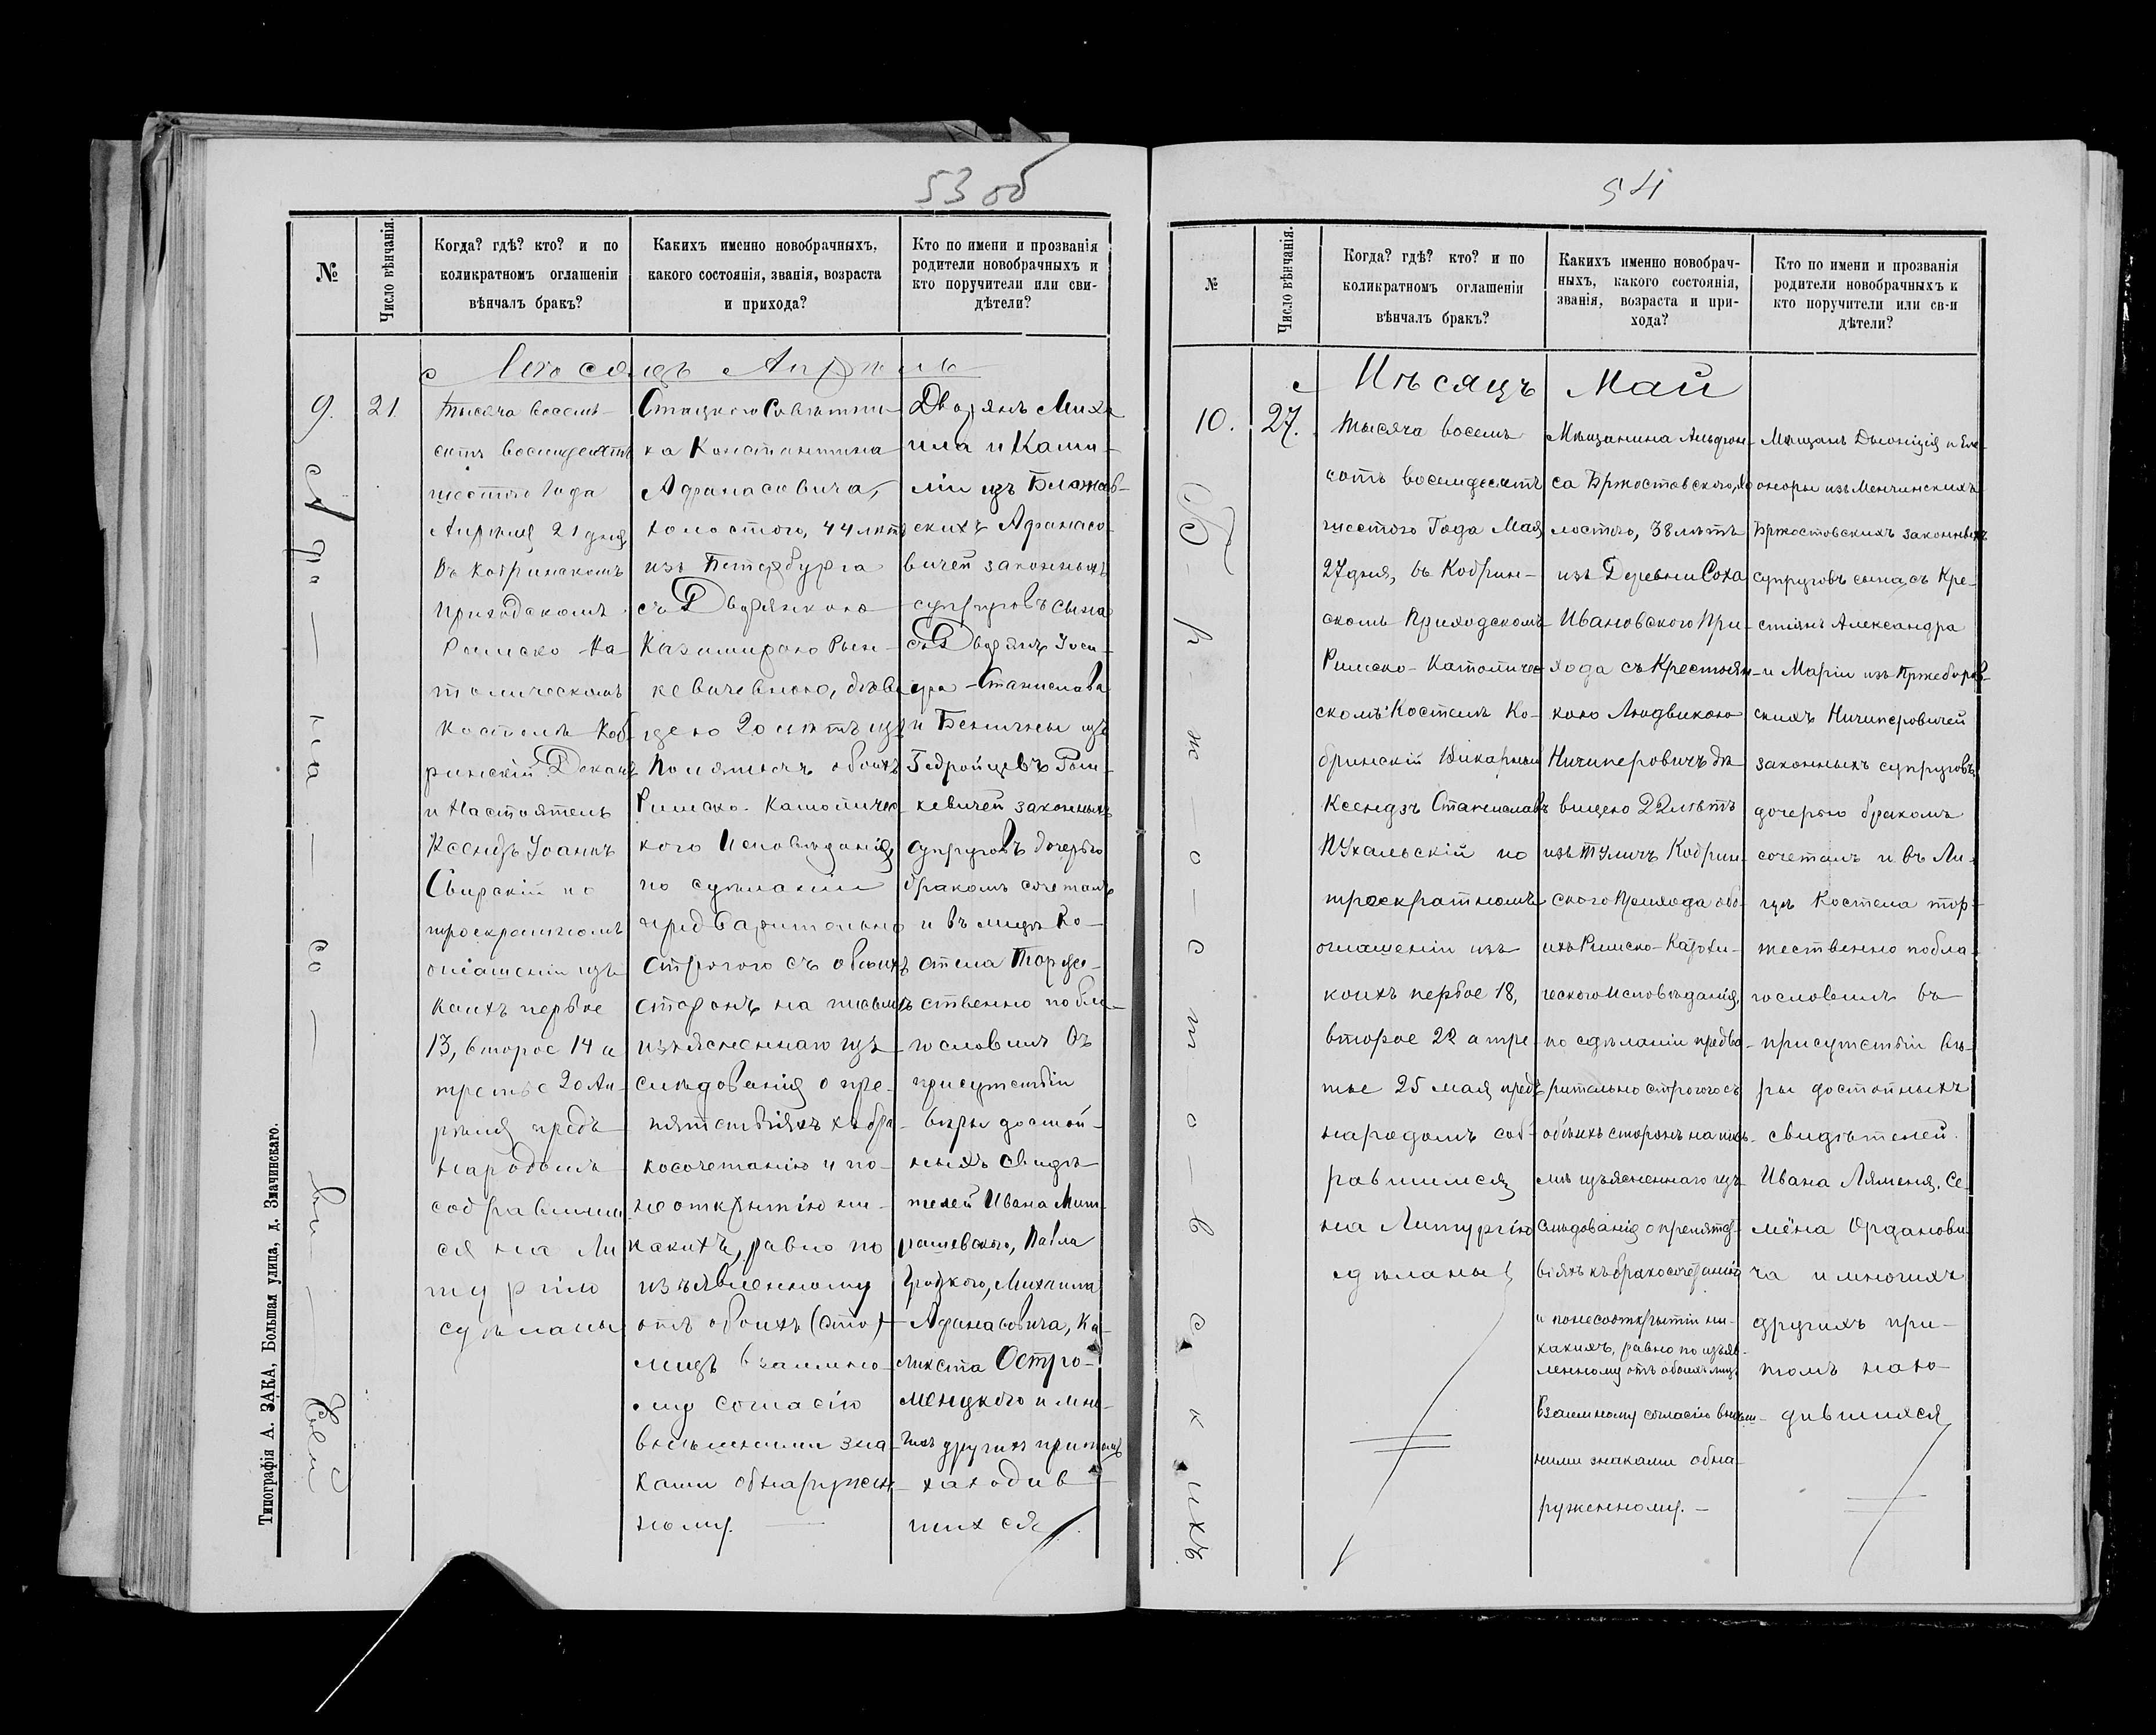 53 об
№
Число вѣнчанія.
Когда? гдѣ? кто? и по
коликратномъ оглашеніи
вѣнчалъ бракъ?
Какихъ именно новобрачныхъ,
какого состоянія, званія, возраста
и прихода?
Кто по имени и прозванія
родители новобрачныхъ и
кто поручители или сви-
дѣтели?
Мѣсяцъ Апрѣль
9.
21.
Тысяча восемь-
сотъ восемдесятъ
шестого Года
Апрѣля 21 дня
въ Кобринскомъ
приходскомъ
Римско Ка-
толическомъ
Костелѣ Коб-
ринскій Деканъ
и Настоятель
Ксендзъ Іоаннъ
Свирскій по
троекратномъ
оглашеніи изъ
коихъ первое
13, второе 14 а
третье 20 Ап-
рѣля предъ
народомъ
собравшим
ся на Ли
тургію
сдѣланы
Статского Совѣтни-
ка Константина
Афанасовича,
холостого, 44 лѣтъ
изъ Петербурга
съ Дворянкою
Казимирою
кевичевною, дѣви
цею 20 лѣтъ изъ
обоихъ
Римско-Католичес
кого Исповѣданія,
по сдѣланіи
предварительно
строгого съ обоихъ
сторонъ на письмѣ
изъясненнаго изъ
слѣдованія о пре-
пятствіяхъ къ бра-
косочетанію и по
неоткрытію ни-
какихъ, равно по
изъявленному
отъ обоихъ (сто)
лицъ взаимно-
му согласію
внѣшними зна-
ками обнаружен-
ному.
Дворянъ Миха
ила и Ками-
ліи изъ
скихъ Афанасо-
вичей законныхъ
супруговъ сына
съ Дворянъ Іоси-
фа-Станислава
и изъ
Гедройцевъ
кевичей законныхъ
супруговъ дочерью
бракомъ сочеталъ
и въ лицѣ Ко-
стела Торже-
ственно побла-
гословилъ въ
присутствіи
вѣры достой-
ныхъ свидѣ-
телей Ивана
рашевского, Павла
Михаила
Афанасовича, Ка-
ликста Остро-
менцкого и мно-
гихъ другихъ притомъ
находив
шихся.
Типографія А. ЗАКА, Большая улица, д. Значинскаго.
54
№
Число вѣнчанія.
Когда? гдѣ? кто? и по
коликратномъ оглашеніи
вѣнчалъ бракъ?
Какихъ именно новобрач-
ныхъ, какого состоянія,
званія, возраста и при-
хода?
Кто по имени и прозванія
родители новобрачныхъ и
кто поручители или св-и
дѣтели?
Мѣсяцъ Май
10.
27.
Б-р-ж-о-с-т-о-в-с-к-ихъ
Тысяча восемь
сотъ восемдесятъ
шестого Года Мая
27 дня, въ Кобрин-
скомъ Приходскомъ
Римско-Католичес-
скомъ Костелѣ Ко-
бринскій Викарный
Ксендзъ Станиславъ
Пухальскій по
троекратномъ
оглашеніи изъ
коихъ первое 18,
второе 22 а тре-
тье 25 мая предъ
народомъ соб-
равшимся
на Литургію
сдѣланы
Мѣщанина Альфон-
са Бржостовского, хо
лостого, 38 лѣтъ
изъ Деревни Соха
Ивановского При-
хода съ Крестьян-
кою Людвикою
Ничипоровичъ дѣ
вицею 22 лѣтъ
изъ Туличъ Кобрин-
ского Прихода обо-
ихъ Римско-Католи-
ческого Исповѣданія,
по сдѣланіи предва-
рительно строгого съ
обѣихъ сторонъ на пись-
мѣ изъясненнаго изъ
слѣдованія о препятст-
віяхъ къ бракосочетанію
и по несооткрытіи ни-
какихъ, равно по изъяв-
ленному отъ обоихъ лицъ
взаимному согласію внѣш-
ними знаками обна-
руженному.-
Мѣщанъ Діонизія и Еле-
оноры изъ Менчинскихъ
Бржостовскихъ законныхъ
супруговъ сына, съ Кре-
стіянъ Александра
и Маріи изъ
скихъ Ничипоровичей
законныхъ супруговъ
дочерью бракомъ
сочеталъ и въ Ли-
цѣ Костела тор-
жественно побла-
гословилъ въ
присутствіи вѣ-
ры достойныхъ
свидѣтелей.
Ивана Ляменя, Се-
мёна Ордынови
ча и многихъ
другихъ при-
томъ нахо-
дившихся